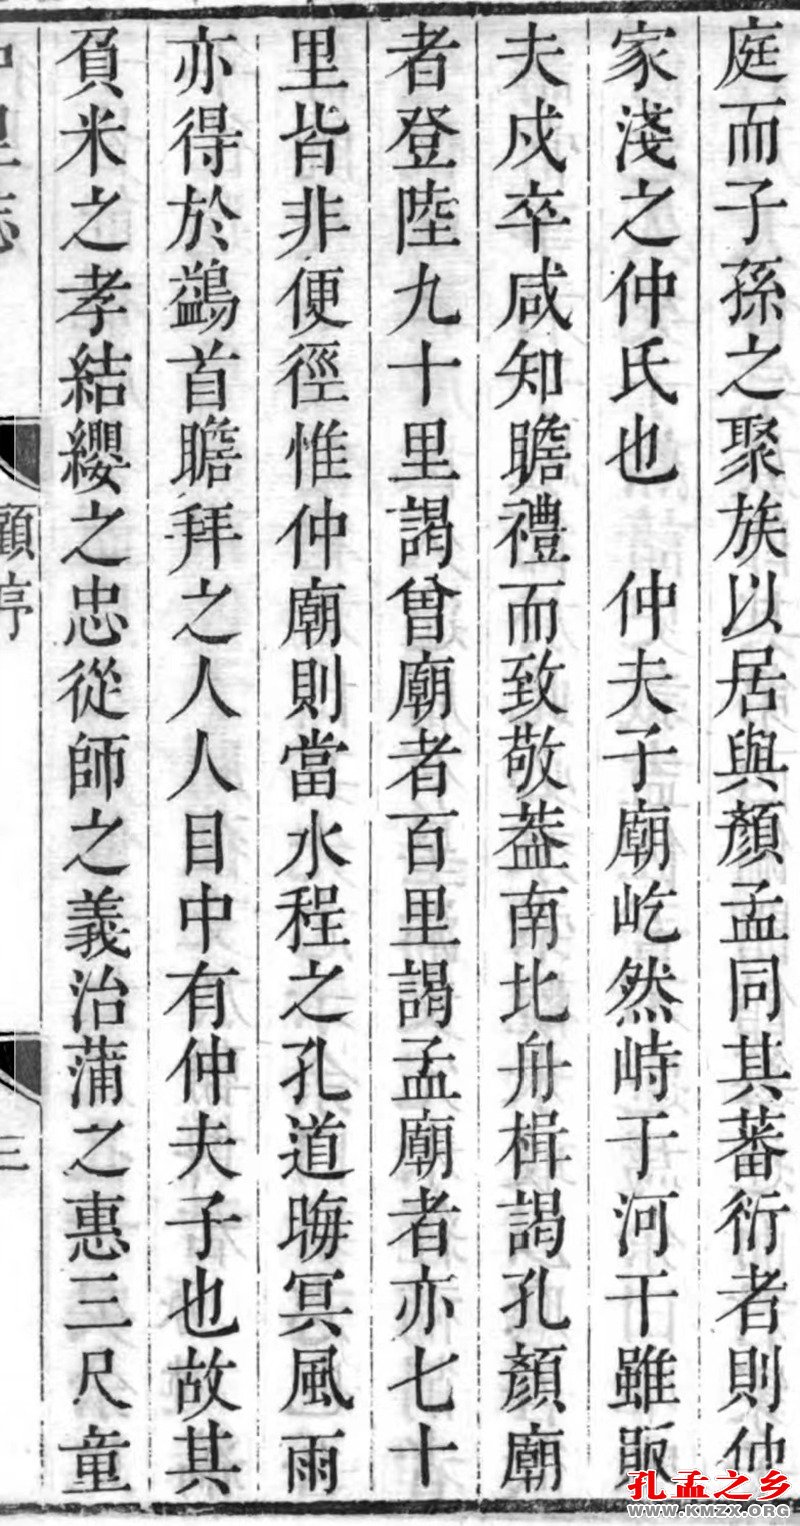 庭而子孫之聚族以居與顏孟同其蕃衍者則仲
家淺之仲氏也　仲夫子廟屹然峙于河干雖販
夫戍卒咸知瞻禮而致敬葢南北舟楫謁孔顏廟
者登陸九十里謁曾廟者百里謁孟廟者亦七十
里皆非便徑惟仲廟則當水程之孔道晦冥風雨
亦得於鷁首瞻拜之人人目中有仲夫子也故其
負米之孝結纓之忠從師之義治蒲之惠三尺童
顧序
三
孔孟之乡
www.KMZX.ORG